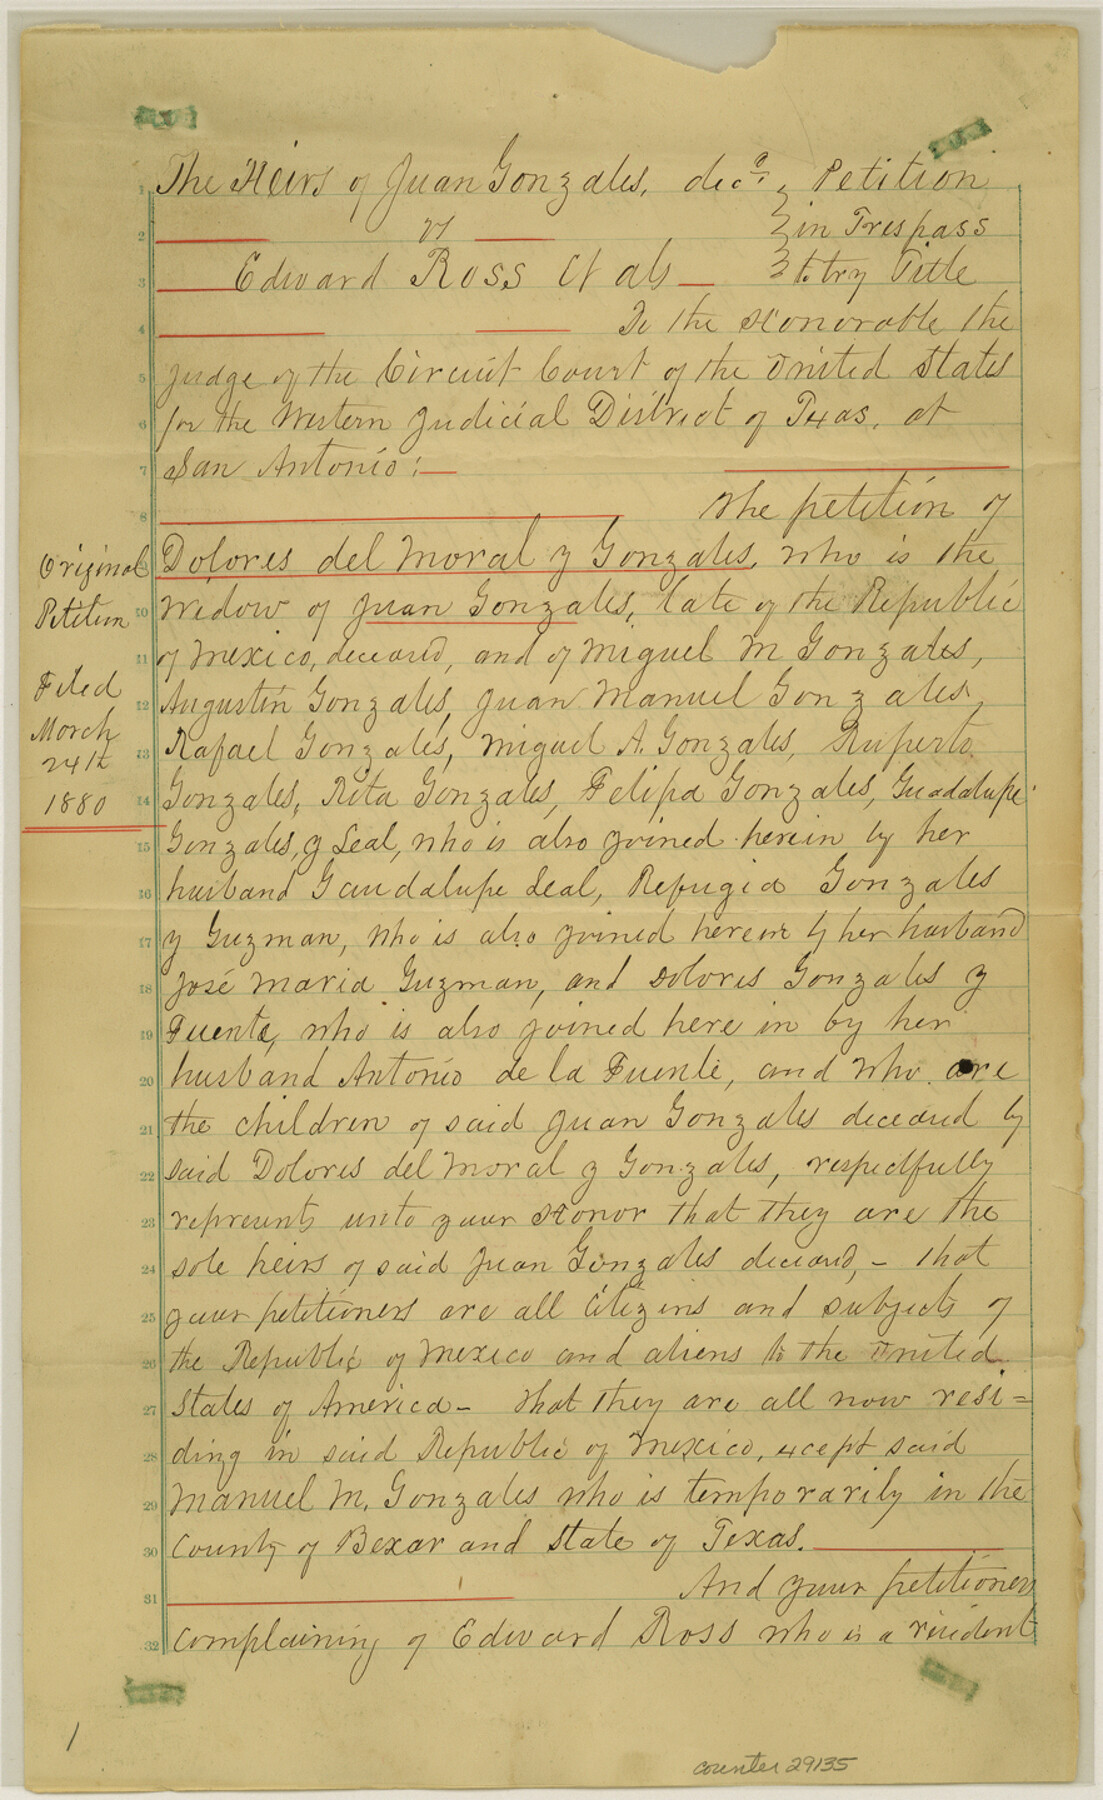 The Heirs of Juan Gonzales, decd. } Petition
vs } in Trespass
Edward Ross et als } to try Title
To the Honorable the
Judge of the Circuit Court of the United States
for the Western Judicial District of Texas, at
San Antonio:
The petition of
Dolores del Moral y Gonzales, who is the
widow of Juan Gonzales, late of the Republic
of Mexico, deceased, and of Miguel M Gonzales,
Augustin Gonzales, Juan Manuel Gonzales,
Rafael Gonzales, Miguel A. Gonzales, Ruperto
Gonzales, Rita Gonzales, Felipa Gonzales, Guadalupe
Gonzales, y Leal, who is also joined herein by her
husband Gaudalupe Leal, Refugia Gonzales
y Guzman, who is also joined herein by her husband
José Maria Guzman, and Dolores Gonzales y
Fuente, who is also joined here in by her
husband Antonio de la Fuente, and who are
the children of said Juan Gonzales deceased by
said Dolores del Moral y Gonzales, respectfully
represents unto your Honor that they are the
sole heirs of said Juan Gonzales deceased, - that
your petitioners are all Citizens and subjects of
the Republic of Mexico and aliens to the United
States of America - that they are all now resi=
ding in said Republic of Mexico, except said
Manuel M. Gonzales who is temporarily in the
County of Bexar and State of Texas.
And your petitioners
complaining of Edward Ross who is a resident
Original
Petition
Filed
March
24th
1880
1
2
3
4
5
6
7
8
10
11
12
13
14
15
16
17
18
19
20
21
22
23
24
25
26
27
28
29
30
31
32
1
counter 29135